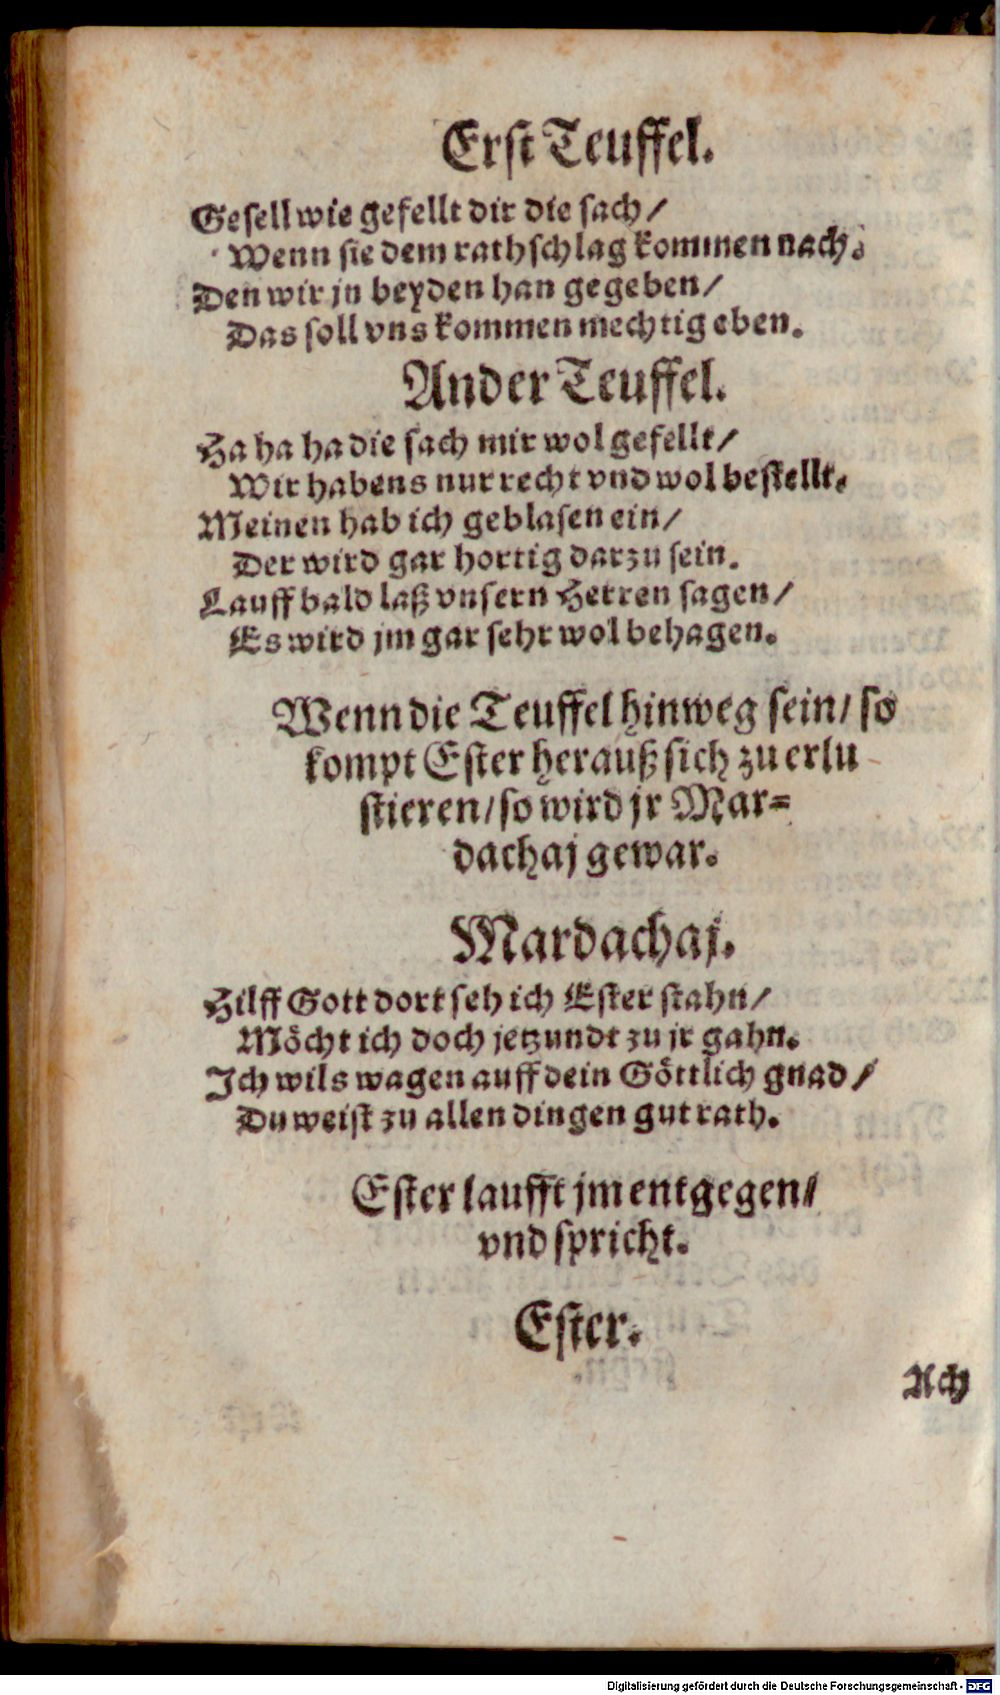 Erst Teuffel.
Gesell wie gefellt dir die sach/
Wenn sie dem rathschlag kommen nach.
Den wir jn beyden han gegeben/
Das soll vns kommen mechtig eben.
Ander Teuffel.
Ha ha ha die sach mir wol gefellt/
Wir habens nur recht vnd wol bestellt.
Meinen hab ich geblasen ein/
Der wird gar hortig darzu sein.
Lauff bald laß vnsern Herren sagen/
Es wird jm gar sehr wol behagen.
Wenn die Teuffel hinweg sein/ so
kompt Ester herauß sich zu erlu
stieren/ so wird jr Mar=
dachaj gewar.
Mardachaj.
Hilff Gott dort seh ich Ester stahn/
Möcht ich doch jetzundt zu jr gahn.
Ich wils wagen auff dein Göttlich gnad/
Du weist zu allen dingen gut rath.
Ester laufft jm entgegen/
vnd spricht.
Ester.
Ach
Digitalisierung gefördert durch die Deutsche Forschungsgemeinschaft - DFG